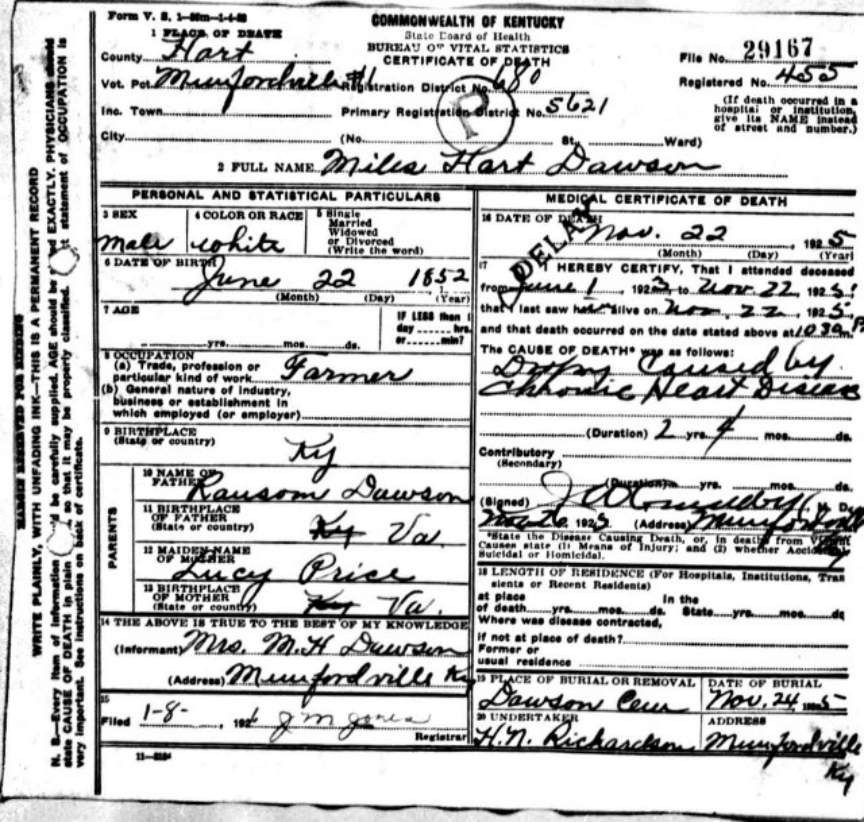 Form V. S. 1-
COMMONWEALTH OF KENTUCKY
State Board of Health
BUREAU OF VITAL STATISTICS
CERTIFICATE OF DEATH
1 PLACE OF DEATH
County Hart
File No. 29167
Vot. Pct. Munfordville #1 Registration District No. 680
Registered No. 455
Inc. Town Primary Registration District No. 5621
(If death occurred in a hospital or institution, give its NAME instead of street and number.)
City (No. St., Ward)
P
2 FULL NAME Miles Hart Dawson
PERSONAL AND STATISTICAL PARTICULARS
3 SEX
Male
4 COLOR OR RACE
white
5 Single
Married
Widowed
or Divorced
(Write the word)
6 DATE OF BIRTH
June 22 1852
(Month) (Day) (Year)
7 AGE
yrs. mos. ds.
IF LESS than 1
day hrs.
or min?
8 OCCUPATION
(a) Trade, profession or
particular kind of work Farmer
(b) General nature of industry,
business or establishment in
which employed (or employer)
9 BIRTHPLACE
(State or country)
Ky
PARENTS
10 NAME OF
FATHER
Ransom Dawson
11 BIRTHPLACE
OF FATHER
(State or country)
Ky Va.
12 MAIDEN NAME
OF MOTHER
Lucy Price
13 BIRTHPLACE
OF MOTHER
(State or country)
Ky Va.
14 THE ABOVE IS TRUE TO THE BEST OF MY KNOWLEDGE
(Informant) Mrs. M. H. Dawson
(Address) Munfordville Ky
15
Filed 1-8- , 1926 J M Jones
Registrar
MEDICAL CERTIFICATE OF DEATH
16 DATE OF DEATH
Nov. 22 , 1925
(Month) (Day) (Year)
DELAY
17 I HEREBY CERTIFY, That I attended deceased
from June 1 , 192 to Nov 22 , 1925
that I last saw alive on Nov, 22 , 1925,
and that death occurred on the date stated above at
The CAUSE OF DEATH* was as follows:
Dropsy Caused by
Chronic Heart Disease
(Duration) 2 yrs. 4 mos. ds.
Contributory
(Secondary)
(Duration) yrs. mos. ds.
(Signed) M. D.
192 (Address) Munfordville
Ky
*State the Disease Causing Death, or, in deaths from Violent
Causes state (1) Means of Injury; and (2) whether Accidental,
Suicidal or Homicidal.
18 LENGTH OF RESIDENCE (For Hospitals, Institutions, Tran
sients or Recent Residents)
at place In the
of death yrs. mos. ds. State yrs. mos. ds
Where was disease contracted,
if not at place of death?
Former or
usual residence
19 PLACE OF BURIAL OR REMOVAL
Dawson Cem
DATE OF BURIAL
Nov. 24, 1925
20 UNDERTAKER
H. N. Richardson
ADDRESS
Munfordville
Ky
MARGIN RESERVED FOR BINDING
WRITE PLAINLY, WITH UNFADING INK—THIS IS A PERMANENT RECORD
N. B.—Every item of information be carefully supplied. AGE should be EXACTLY. PHYSICIANS should
state CAUSE OF DEATH in plain so that it may be properly classified. statement of OCCUPATION is
very important. See instructions on back of certificate.